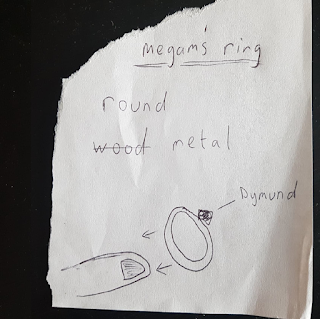 Megam's ring
round
wood metal
Dymund